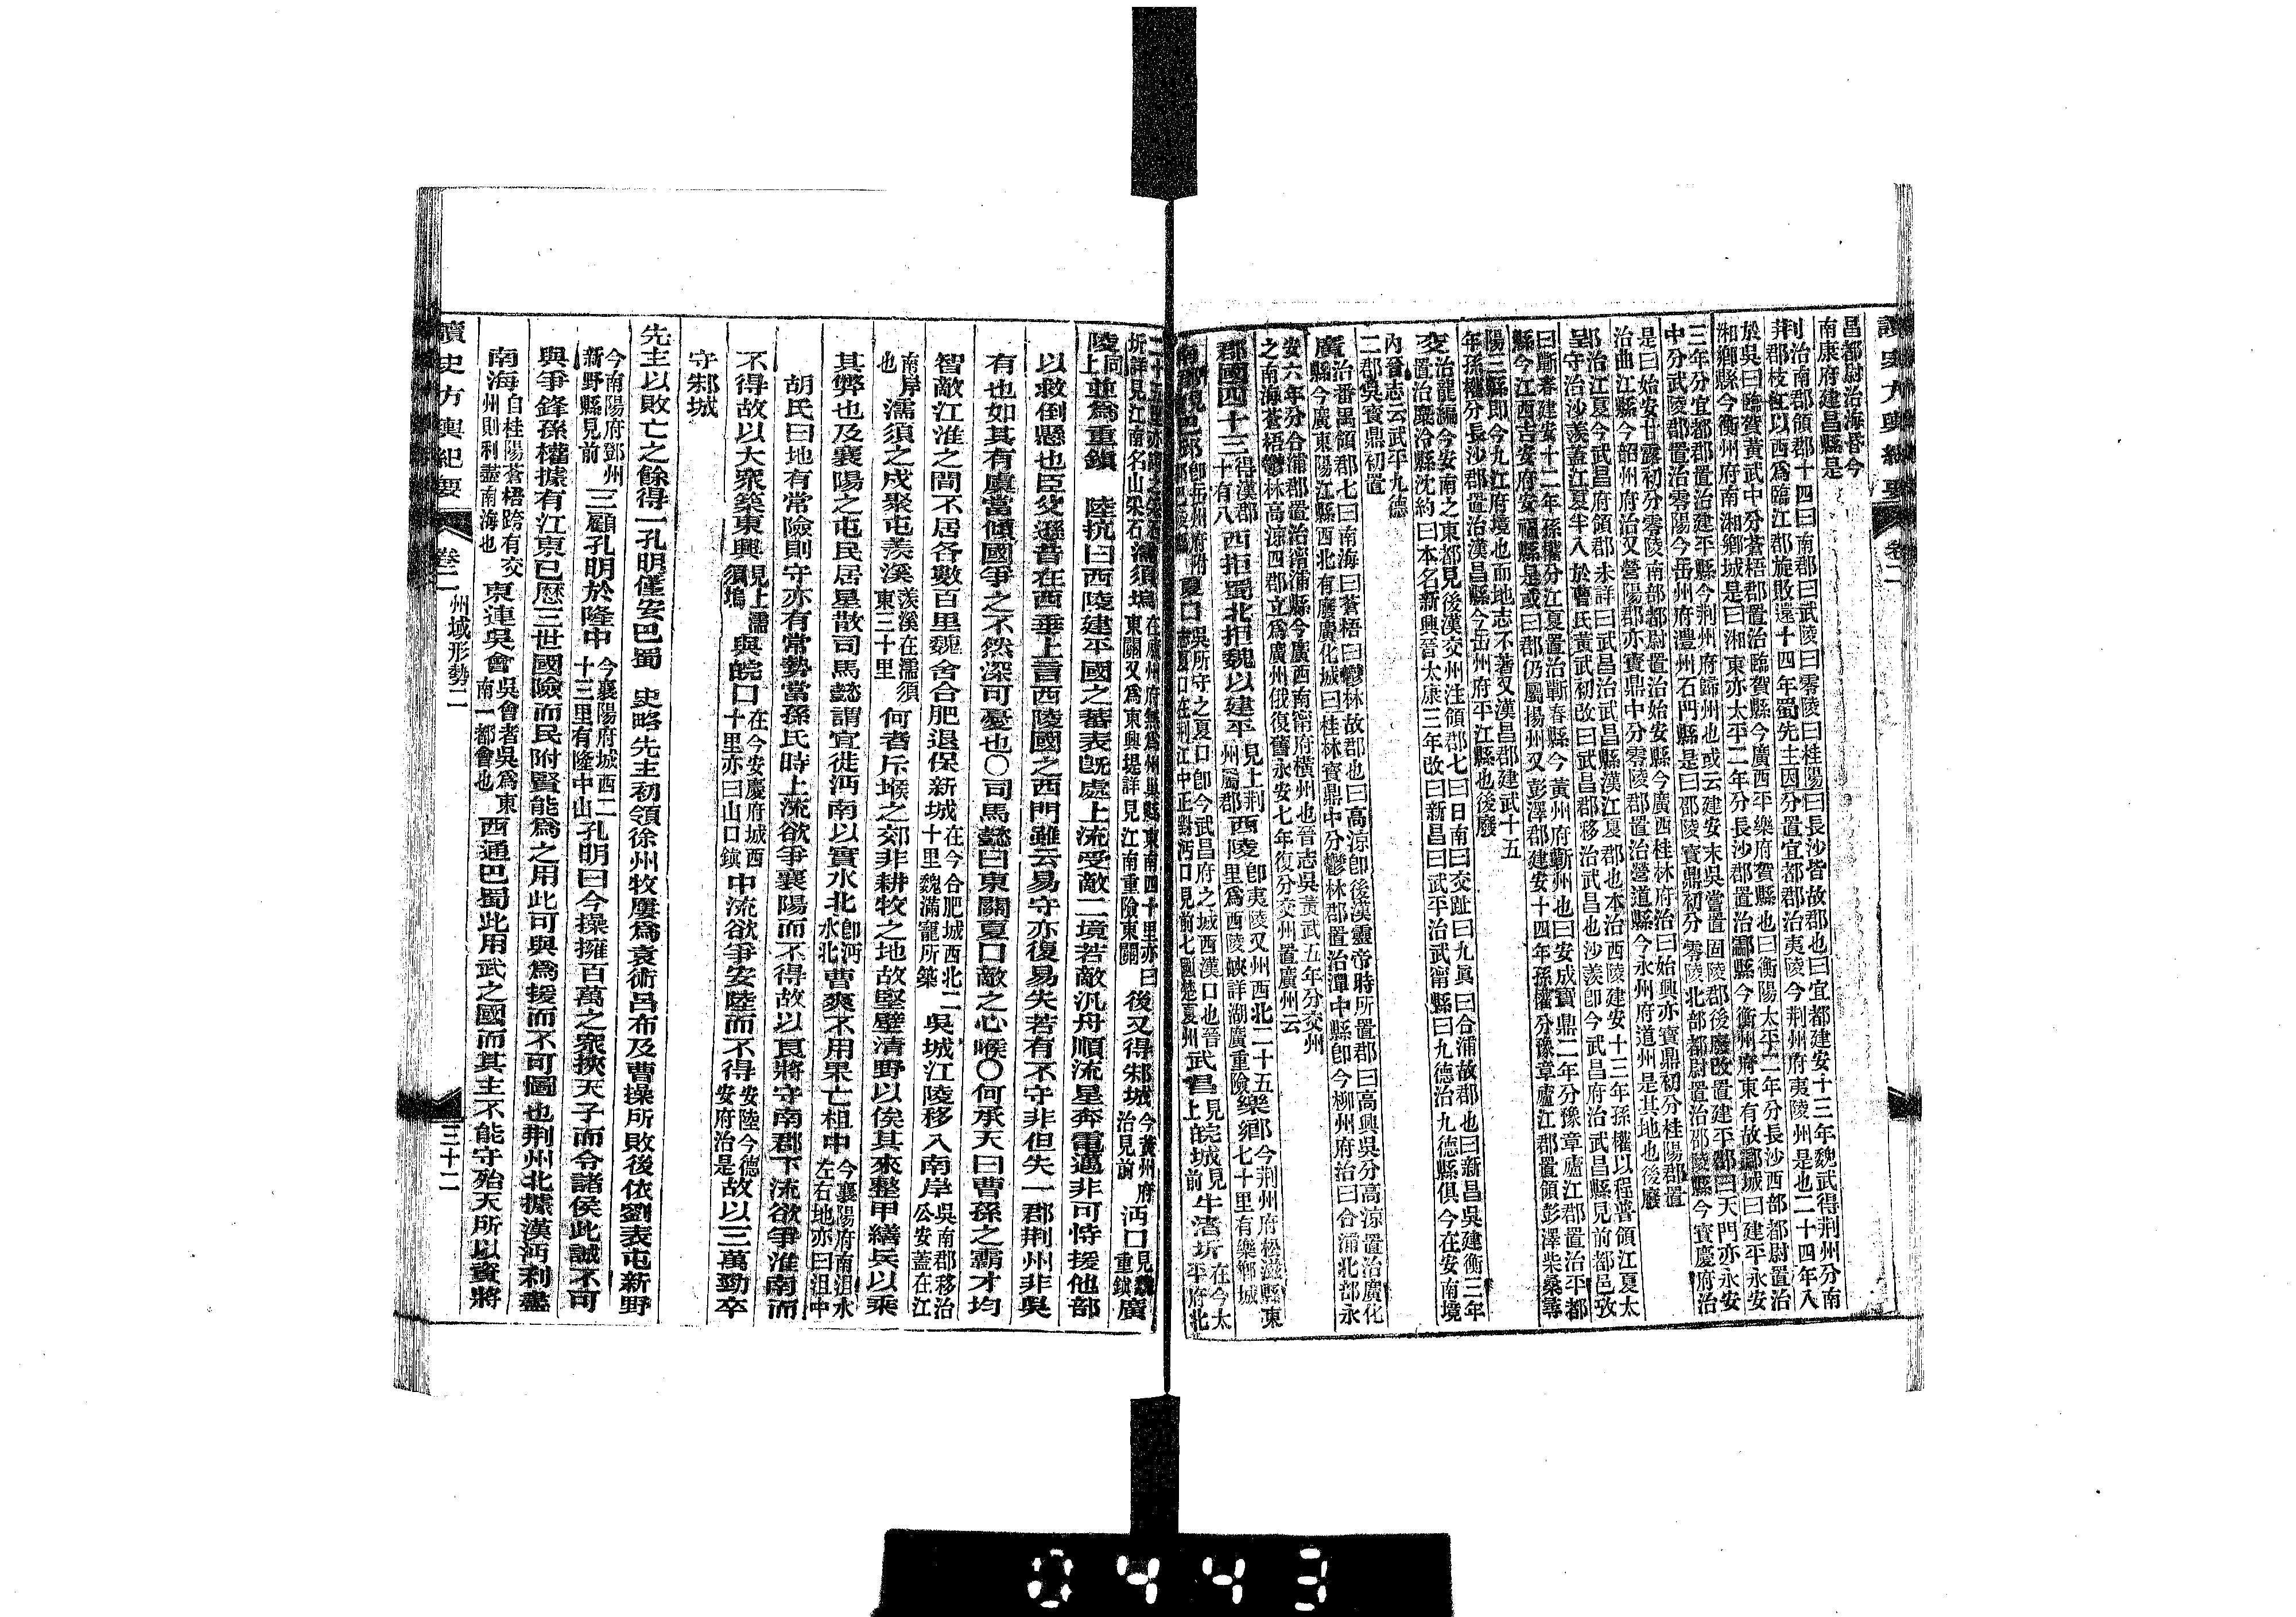 讀史方輿紀要 卷二
昌都尉治海昏今
南康府建昌縣是
荆治南郡領郡十四曰南郡曰武陵曰零陵曰桂陽曰長沙皆故郡也曰宜都建安十三年魏武得荆州分南
郡枝江以西爲臨江郡旋敗還十四年蜀先主因分置宜都郡治夷陵今荆州府夷陵州是也二十四年入
於吳曰臨賀黃武中分蒼梧郡置治臨賀縣今廣西平樂府賀縣也曰衡陽太平二年分長沙西部都尉置治
湘鄉縣今衡州府南湘鄉城是曰湘東亦太平二年分長沙郡置治酃縣今衡州府東有故酃城曰建平永安
三年分宜都郡置治建平縣今荆州府歸州也或云建安末吳嘗置固陵郡後廢改置建平郡曰天門亦永安
中分武陵郡置治零陽今岳州府澧州石門縣是曰邵陵寶鼎初分零陵北部都尉置治邵陵縣今寶慶府治
是曰始安甘露初分零陵南部都尉置治始安縣今廣西桂林府治曰始興亦寶鼎初分桂陽郡置
治曲江縣今韶州府治又營陽郡亦寶鼎中分零陵郡置治營道縣今永州府道州是其地也後廢
郢治江夏今武昌府領郡未詳曰武昌治武昌縣漢江夏郡也本治西陵建安十三年孫權以程普領江夏太
守治沙羨蓋江夏半入於曹氏黃武初改曰武昌郡移治武昌也沙羨卽今武昌府治武昌縣見前都邑攷
曰蘄春建安十二年孫權分江夏置治蘄春縣今黃州府蘄州也曰安成寶鼎二年分豫章廬江郡置治平都
縣今江西吉安府安福縣是或曰郡仍屬揚州又彭澤郡建安十四年孫權分豫章廬江郡置領彭澤柴桑尋
陽三縣即今九江府境也而地志不著又漢昌郡建武十五
年孫權分長沙郡置治漢昌縣今岳州府平江縣也後廢
交治龍編今安南之東都見後漢交州注領郡七曰日南曰交趾曰九眞曰合浦故郡也曰新昌吳建衡三年
置治麊泠縣沈約曰本名新興晉太康三年改曰新昌曰武平治武甯縣曰九德治九德縣俱今在安南境
內晉志云武平九德
二郡吳寶鼎初置
廣治番禺領郡七曰南海曰蒼梧曰鬱林故郡也曰高涼卽後漢靈帝時所置郡曰高興吳分高涼置治廣化
縣今廣東陽江縣西北有廢廣化城曰桂林寶鼎中分鬱林郡置治潭中縣卽今柳州府治曰合浦北部永
安六年分合浦郡置治甯浦縣今廣西南甯府橫州也晉志吳黃武五年分交州
之南海蒼梧鬱林高涼四郡立爲廣州俄復舊永安七年復分交州置廣州云
郡國四十三得漢郡十有八西拒蜀北拒魏以建平見上荆州屬郡西陵卽夷陵又州西北二十五里爲西陵峽詳湖廣重險樂鄉今荆州府松滋縣東七十里有樂鄉城
南郡卽岳州府附夏口吳所守之夏口卽今武昌府之城西漢口也晉夏口在荆江中正對沔口見前七國楚夏州武昌見上皖城見前牛渚圻在今太平府北
二十五里圻詳見江南名山采石濡須塢在廬州府無爲州巢縣東南四十里亦曰東關又爲東興堤詳見江南重險東關後又得邾城今黃州府治見前沔口見魏重鎮廣
陵同上並爲重鎮 陸抗曰西陵建平國之蕃表旣處上流受敵二境若敵汎舟順流星奔電邁非可恃援他部
以救倒懸也臣父遜昔在西垂上言西陵國之西門雖云易守亦復易失若有不守非但失一郡荆州非吳
有也如其有虞當傾國爭之不然深可憂也〇司馬懿曰東關夏口敵之心喉〇何承天曰曹孫之霸才均
智敵江淮之間不居各數百里魏舍合肥退保新城在今合肥城西北二十里魏滿寵所築吳城江陵移入南岸吳南郡移治公安蓋在江
南岸也濡須之戍聚屯羨溪羨溪在濡須東三十里何者斥堠之郊非耕牧之地故堅壁清野以俟其來整甲繕兵以乘
其弊也及襄陽之屯民居星散司馬懿謂宜徙沔南以實水北卽沔水北曹爽不用果亡柤中今襄陽府南沮水左右地亦曰沮中
胡氏曰地有常險則守亦有常勢當孫氏時上流欲爭襄陽而不得故以良將守南郡下流欲爭淮南而
不得故以大衆築東興見上濡須塢與皖口在今安慶府城西十里亦曰山口鎮中流欲爭安陸而不得安陸今德安府治是故以三萬勁卒
守邾城
先主以敗亡之餘得一孔明僅安巴蜀 史略先主初領徐州牧屢爲袁術呂布及曹操所敗後依劉表屯新野
今南陽府鄧州新野縣見前三顧孔明於隆中今襄陽府城西二十三里有隆中山孔明曰今操擁百萬之衆挾天子而令諸侯此誠不可
與爭鋒孫權據有江東已歷三世國險而民附賢能爲之用此可與爲援而不可圖也荆州北據漢沔利盡
南海自桂陽蒼梧跨有交州則利盡南海也東連吳會吳會者吳爲東南一都會也西通巴蜀此用武之國而其主不能守殆天所以資將
讀史方輿紀要 卷二 州域形勢二 三十二
0443